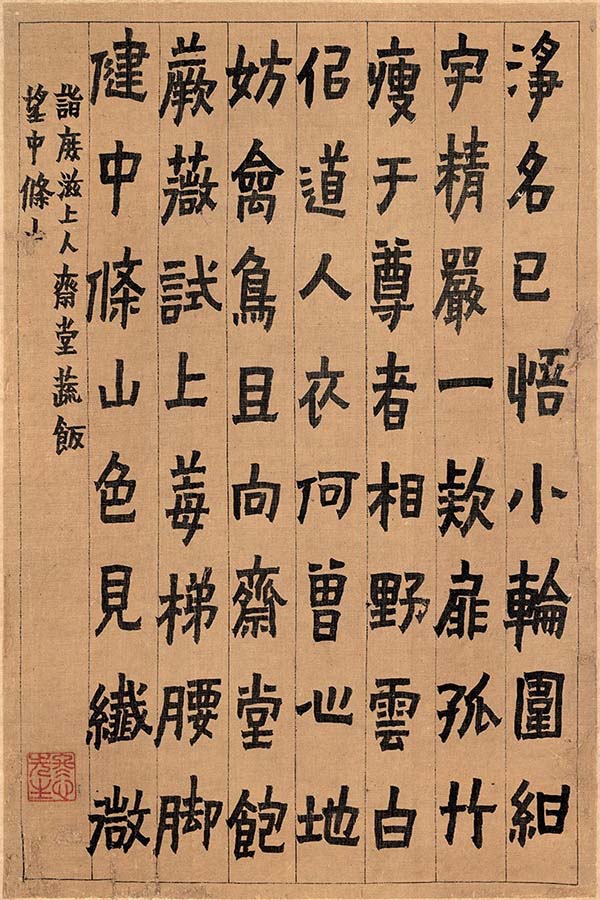 淨名已悟小輪圍紺
宇精嚴一欵扉孤竹
瘦于尊者相野雲白
佀道人衣何曾心地
妨禽鳥且向齋堂飽
蕨薇試上莓梯腰脚
健中條山色見纖微
詣度滋上人齋堂蔬飯
望中條山
冬心先生